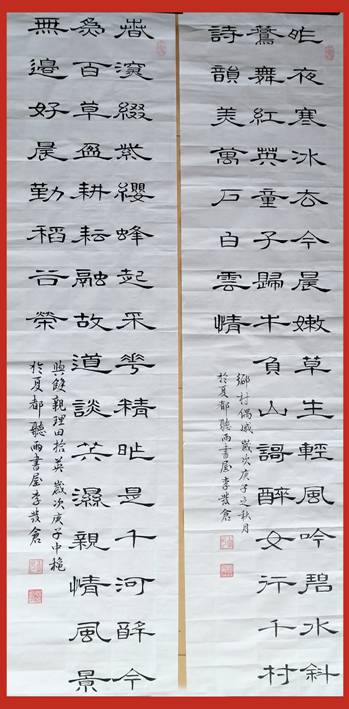 昨夜寒冰去今晨嫩草生輕風吟碧水斜
鶯舞紅英童子歸牛負山謌醉女行千村
詩韻美萬戶白雲情
鄉村偶感 歲次庚子之秋月
於夏都聽雨書屋李發倉
綴紫纓蜂起采華精昨是千河醉今
為百草盈耕耘融故道談笑濕親情風景
無邊好晨勤稻谷榮
與雙親理田拾英 歲次庚子中
於夏都聽雨書屋李發倉